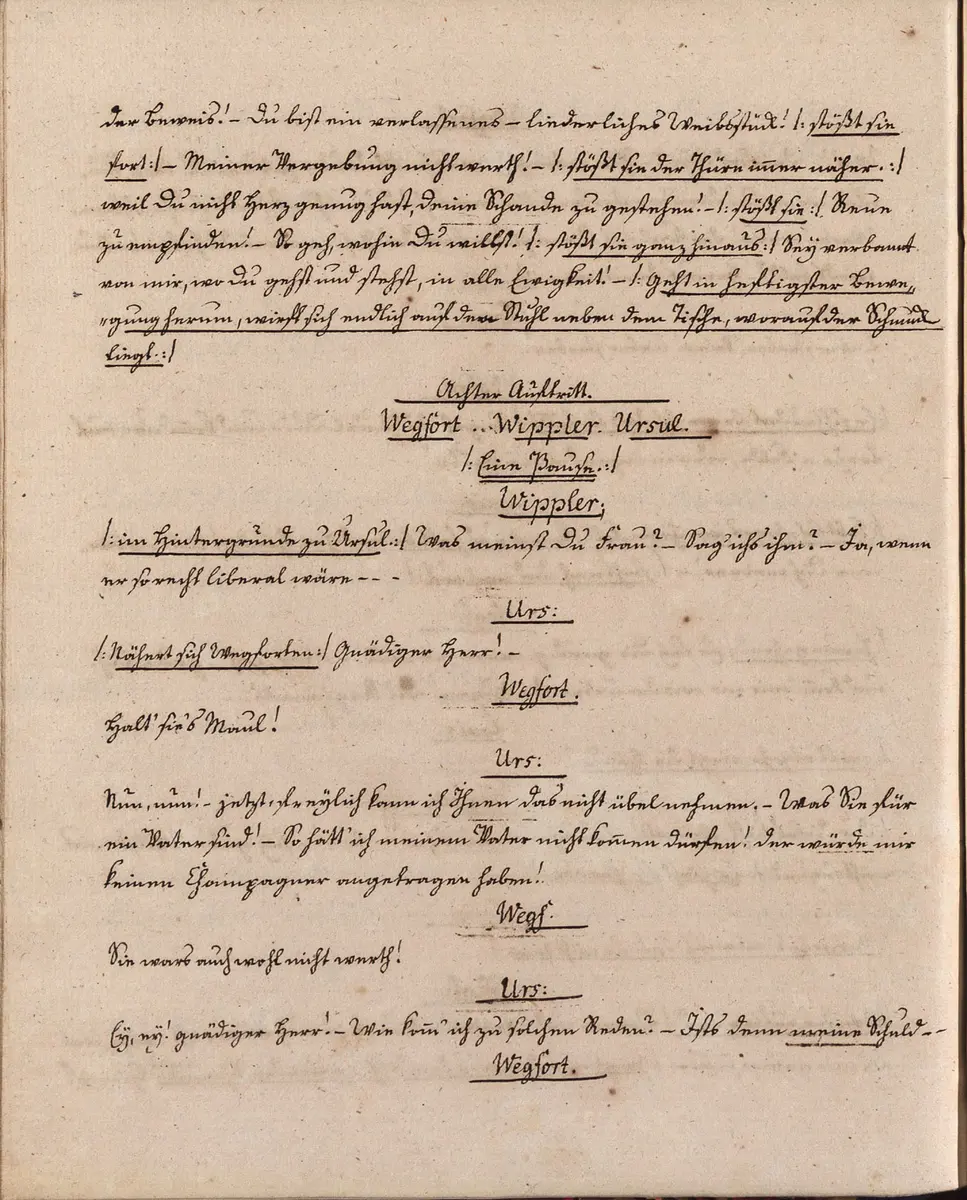 der Beweis! – Du bist ein verlassenes – liederliches Weibsstück! /: stößt sie
fort :/ – Meiner Vergebung nicht werth! – /: stößt sie der Thüre immer näher. :/
weil Du nicht Herz genug hast, deine Schande zu gestehen! – /: stößt sie :/ Reue
zu empfinden! – So geh, wohin Du willst! /: stößt sie ganz hinaus :/ Sey verbannt
von mir, wo Du gehst und stehst, in alle Ewigkeit! – /: Geht in heftigster Bewe„
„gung herum, wirft sich endlich auf den Stuhl neben dem Tische, worauf der Schmuck
liegt. :/
Achter Auftritt.
Wegfort .. Wippler. Ursul.
/: Eine Pause. :/
Wippler;
/: im Hintergrunde zu Ursul. :/ Was meinst Du Frau? – Sag' ichs ihm? – Ja, wenn
er so recht liberal wäre – – –
Urs:
/: Nähert sich Wegforten :/ Gnädiger Herr! –
Wegfort.
Halt' sie's Maul!
Urs:
Nun, nun! – jetzt, freylich kann ich Ihnen das nicht übel nehmen. – Was Sie für
ein Vater sind! – So hätt' ich meinem Vater nicht kommen dürfen! der würde mir
keinen Champagner angetragen haben!
Wegf.
Sie wars auch wohl nicht werth!
Urs:
Ey, ey! gnädiger Herr! – Wie komm' ich zu solchen Reden? – Ists denn meine Schuld – –
Wegfort.